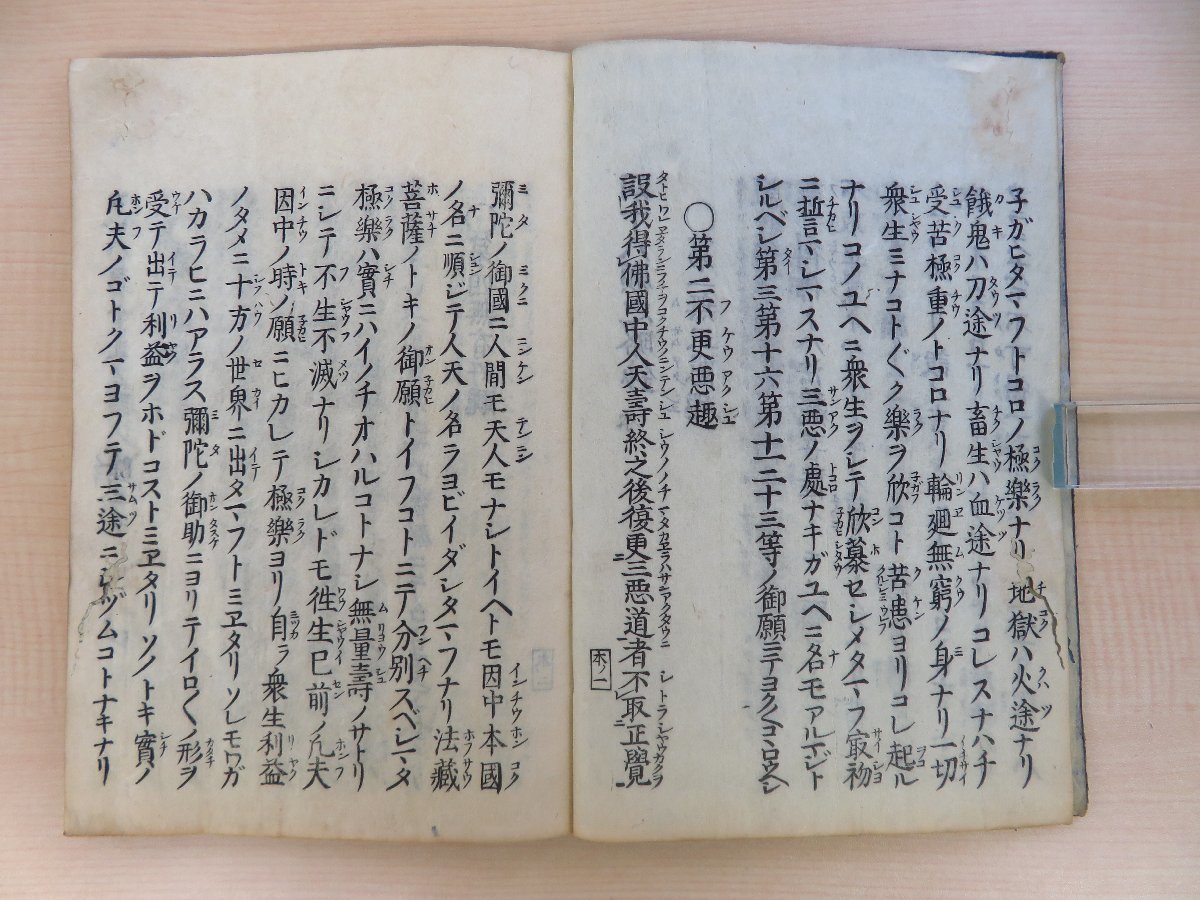 子ガヒタマフトコロノ極樂ナリ 地獄ハ火途ナリ
餓鬼ハ刀途ナリ畜生ハ血途ナリコレスナハチ
受苦極重ノトコロナリ輪廻無窮ノ身ナリ一切
衆生ミナコトぐク樂ヲ欣コト苦患ヨリコレ起ル
ナリコノユヘニ衆生ヲシテ欣慕セシメタマフ最初
ニ誓言マシマスナリ三惡ノ處ナキガユヘニ名モアルマジト
シルベシ第三第十六第十一二十三等ノ御願ミテヨクヽコヽロウヘシ
○第二不更悪趣
設我得佛國中人天壽終之後復更三惡道者不取正覺
本ノ二
彌陀ノ御國ニ人間モ天人モナシトイヘトモ因中本國
ノ名ニ順ジテ人天ノ名ヲヨビイダシタマフナリ法藏
菩薩ノトキノ御願トイフコトニテ分別スベシマタ
極樂ハ實ニハイノチオハルコトナシ無量壽ノサトリ
ニシテ不生不滅ナリシカレドモ徃生已前ノ凢夫
因中ノ時ノ願ニヒカレテ極樂ヨリ自ラ衆生利益
ノタメニ十方ノ世界ニ出タマフトミヱタリソレモワガ
ハカラヒニハアラス彌陀ノ御助ニヨリテイロ〱ノ形ヲ
受テ出テ利益ヲホドコストミヱタリソノトキ實ノ
凢夫ノゴトクマヨフテ三途ニシヅムコトナキナリ